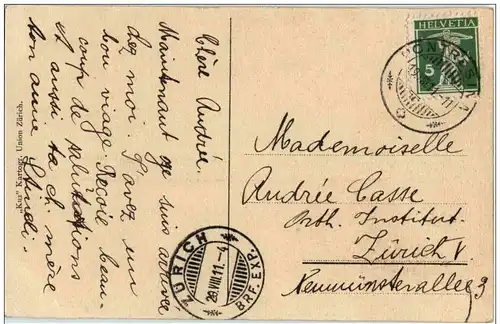 Chère Andrée.
Maintenant je suis arrivée
chez moi. J'avez un
bon viage. Reçoie beau-
coup de salutations
et aussi ta ch. mère
ton amie
"Kua" Kartogr. Union Zürich.
HELVETIA
5
PONTRESINA
ZÜRICH
28.VIII.11.-4
BRF. EXP.
Mademoiselle
Andrée Casse
Institut.
Zürich V
Neumünsterallee 3